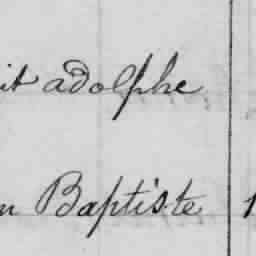 it adolphe
n Baptiste 1